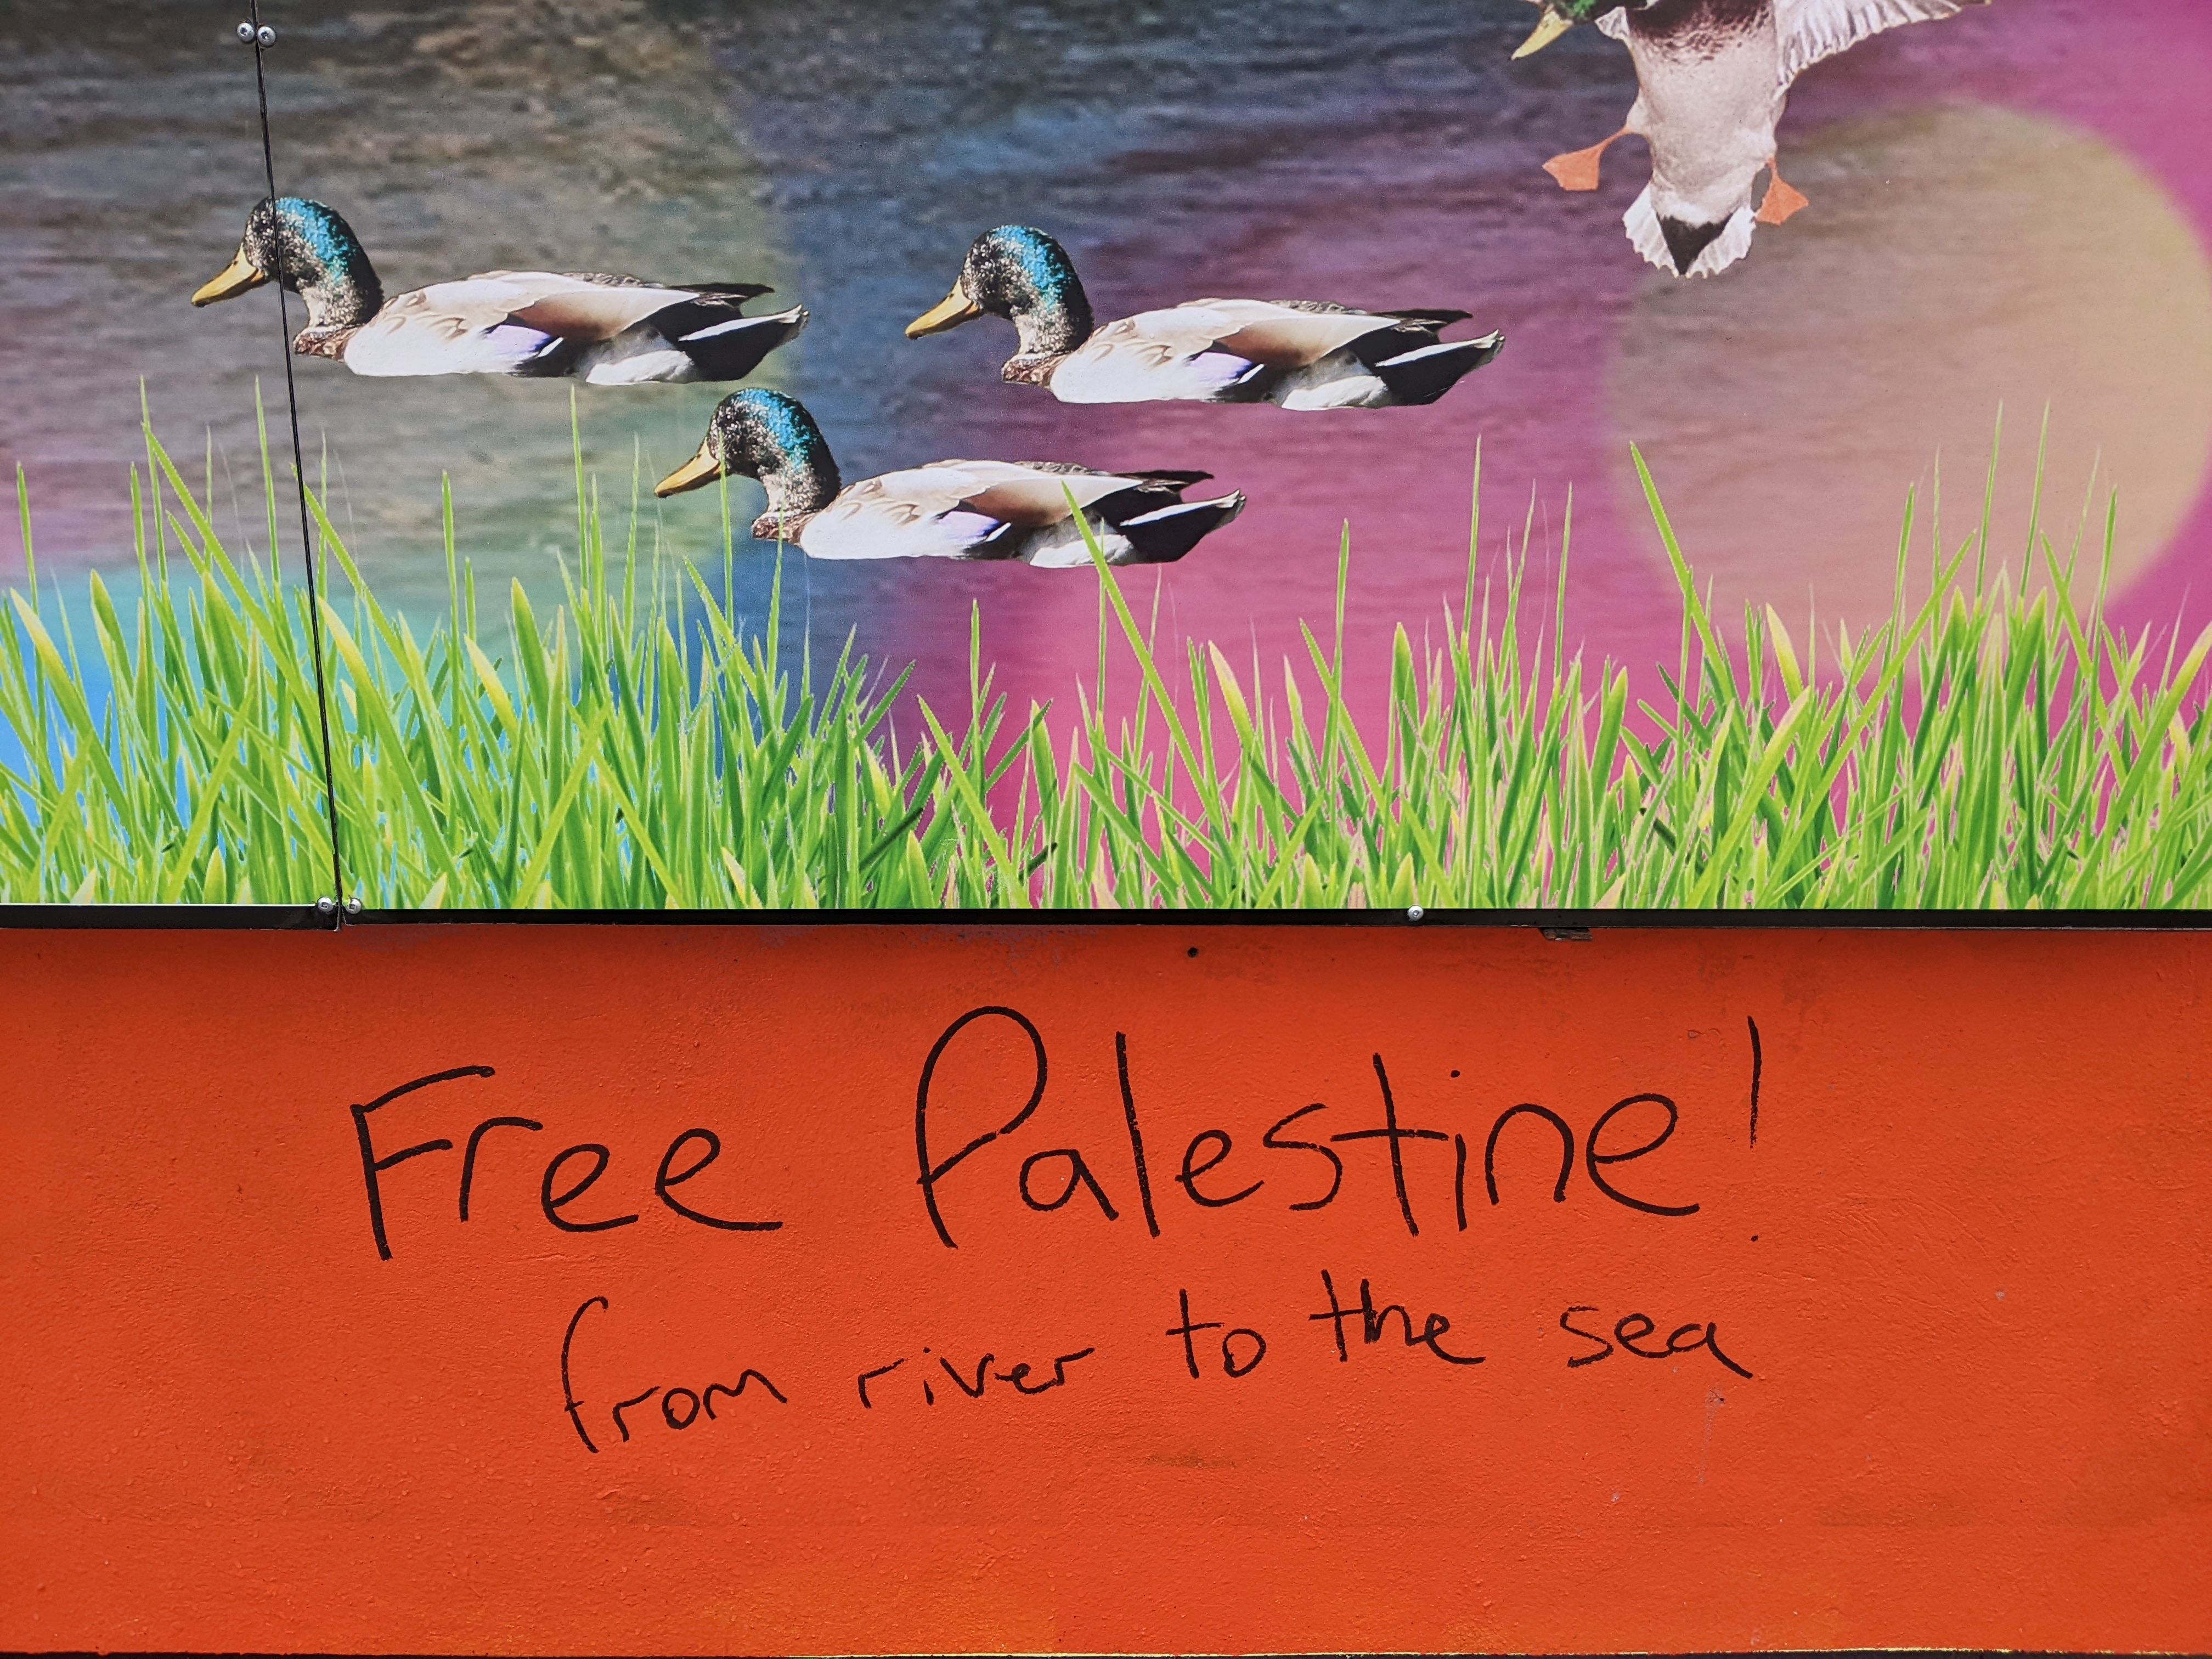 Free Palestine!
from river to the sea